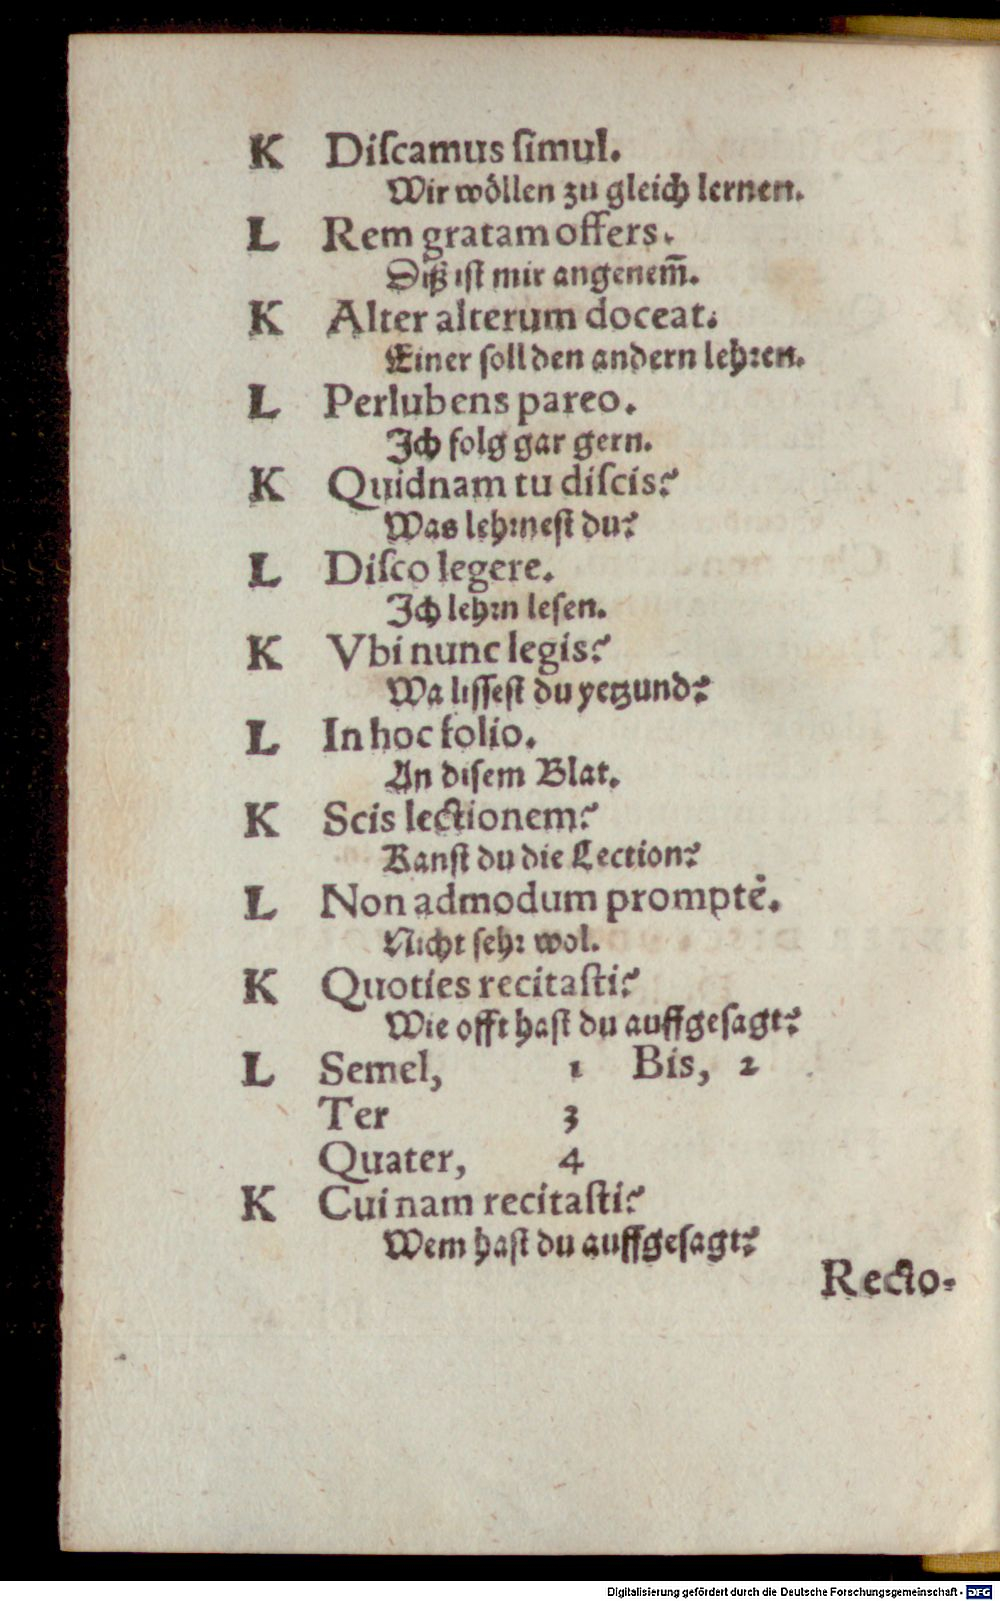 K Diſcamus ſimul.
Wir wöllen zu gleich lernen.
L Rem gratam offers.
Diß iſt mir angenem̃.
K Alter alterum doceat.
Einer ſoll den andern lehꝛen.
L Perlubens pareo.
Ich folg gar gern.
K Quidnam tu diſcis?
Was lehꝛneſt du?
L Diſco legere.
Ich lehꝛn leſen.
K Vbi nunc legis?
Wa liſſeſt du yetzund?
L In hoc folio.
An diſem Blat.
K Scis lectionem?
Kanſt du die Lection?
L Non admodum promptè.
Nicht ſehꝛ wol.
K Quoties recitaſti?
Wie offt haſt du auffgeſagt?
L Semel, 1 Bis, 2
Ter 3
Quater, 4
K Cuinam recitaſti?
Wem haſt du auffgeſagt?
Recto-
Digitalisierung gefördert durch die Deutsche Forschungsgemeinschaft - DFG